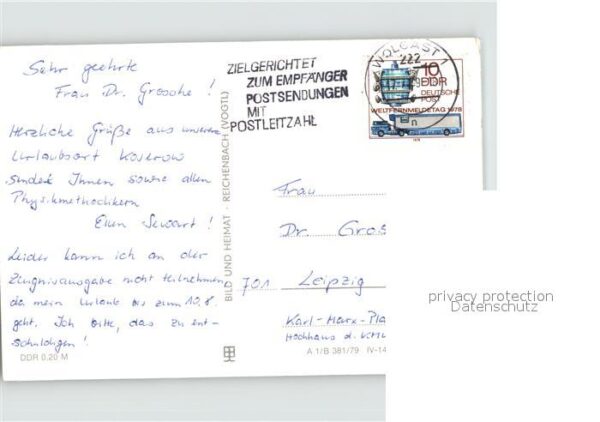 Sehr geehrte
Frau Dr. Grosche !
Herzliche Grüße aus unserem
Urlaubsort Koserow
sendet Ihnen sowie allen
Physikmethodikern
Ellen Sewart !
Leider kann ich an der
Zeugnisausgabe nicht teilnehmen
da mein Urlaub bis zum 10.8.
geht. Ich bitte, das zu ent-
schuldigen !
DDR 0,20 M
BILD UND HEIMAT · REICHENBACH (VOGTL)
ZIELGERICHTET
ZUM EMPFÄNGER
POSTSENDUNGEN
MIT
POSTLEITZAHL
WOLGAST 1
222
10
DDR
DEUTSCHE
POST
WELTFERNMELDETAG 1978
1978
Frau
Dr. Gros
701 Leipzig
Karl-Marx-Pla
Hochhaus d. KMU
A 1/B 381/79 IV-14
privacy protection
Datenschutz